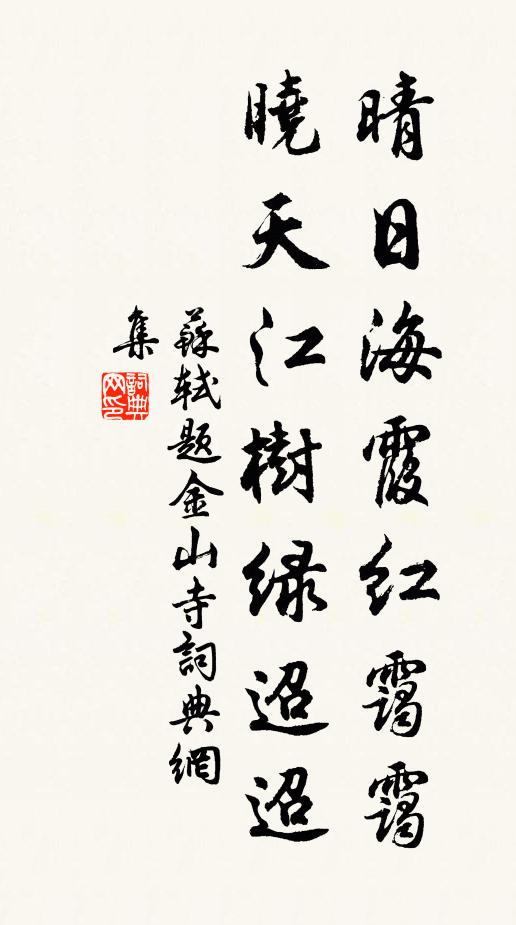 晴日海霞紅靄靄
曉天江樹緑迢迢
蘇軾題金山寺詞典網
集
詞典
网印